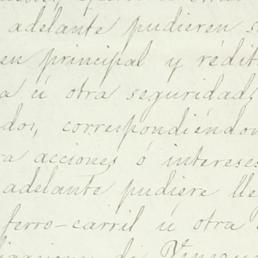 adelante pudieren s
en principal y rédit
a ú otra seguridad
dos, correspondiéndo
ra acciones ó intereses
adelante pudiere lle
ferro-carril ú otra